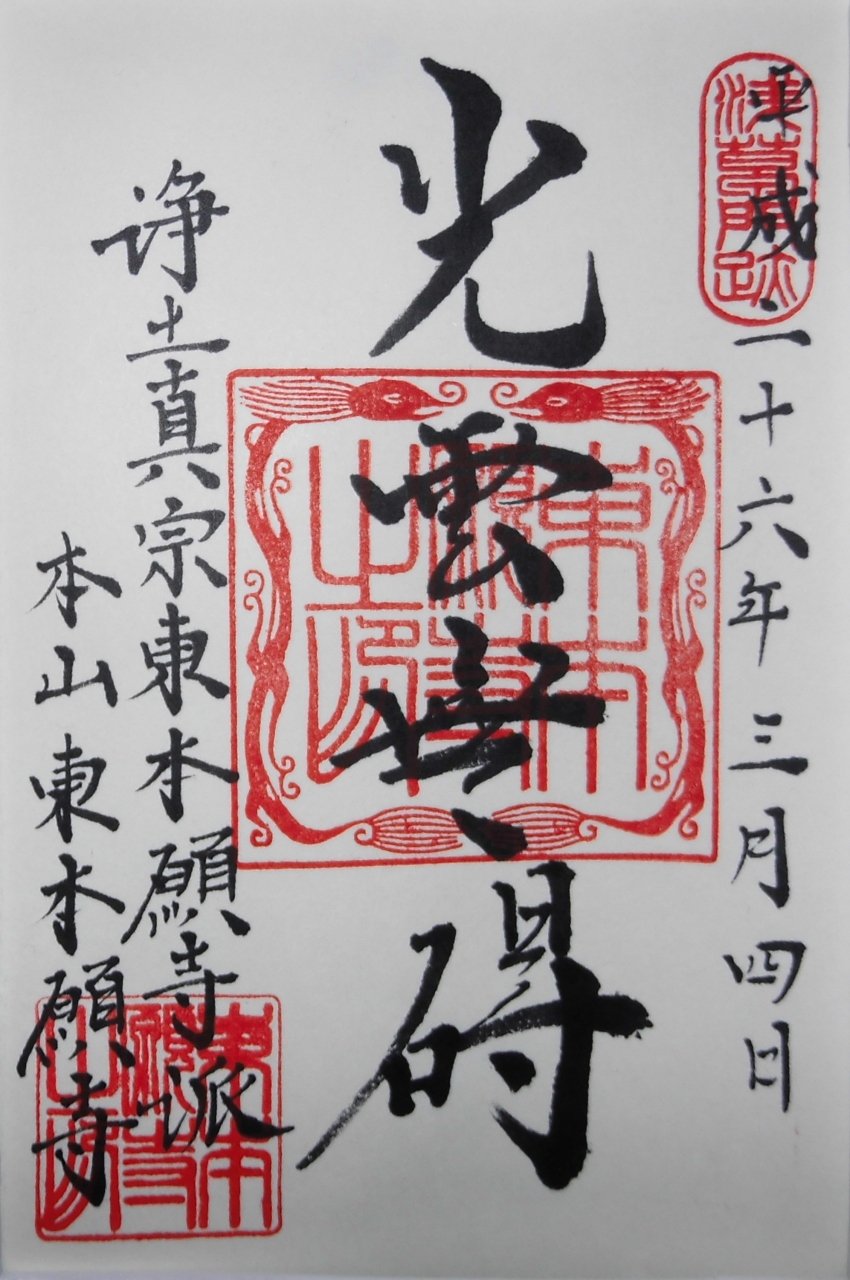 淺草門跡
平成二十六年三月四日
光雲無碍
東本願寺之印
浄土真宗東本願寺派
本山東本願寺
東本願寺之印